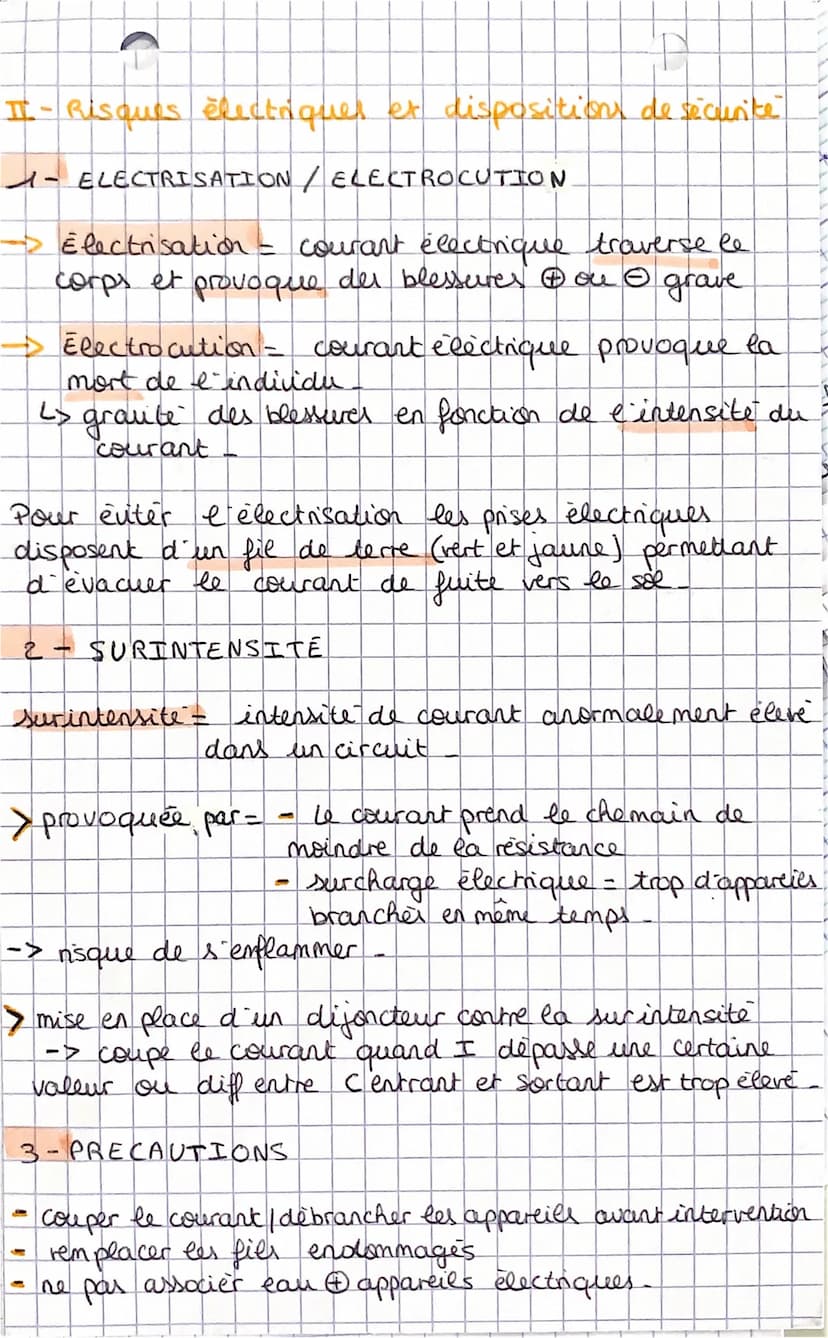 II - Risques électriques et dispositions de sécurité
1 - ELECTRISATION / ELECTROCUTION
-> Électrisation = courant électrique traverse le
corps et provoque des blessures ⊕ ou ⊖ grave
-> Électrocution = courant électrique provoque la
mort de l'individu -
↳ gravité des blessures en fonction de l'intensité du
courant -
Pour éviter l'électrisation les prises électriques
disposent d'un fil de terre (vert et jaune) permettant
d'évacuer le courant de fuite vers le sol -
2 - SURINTENSITÉ
surintensité = intensité de courant anormalement élevé
dans un circuit -
> provoquée par = - le courant prend le chemain de
moindre de la résistance
- surcharge électrique = trop d'appareils
branchés en même temps -
-> risque de s'enflammer -
> mise en place d'un dijoncteur contre la surintensité
-> coupe le courant quand I dépasse une certaine
valeur ou diff entre C entrant et sortant est trop élevé -
3 - PRECAUTIONS
- couper le courant / débrancher les appareils avant intervention
- remplacer les fils endommagés
- ne pas associer eau ⊕ appareils électriques -